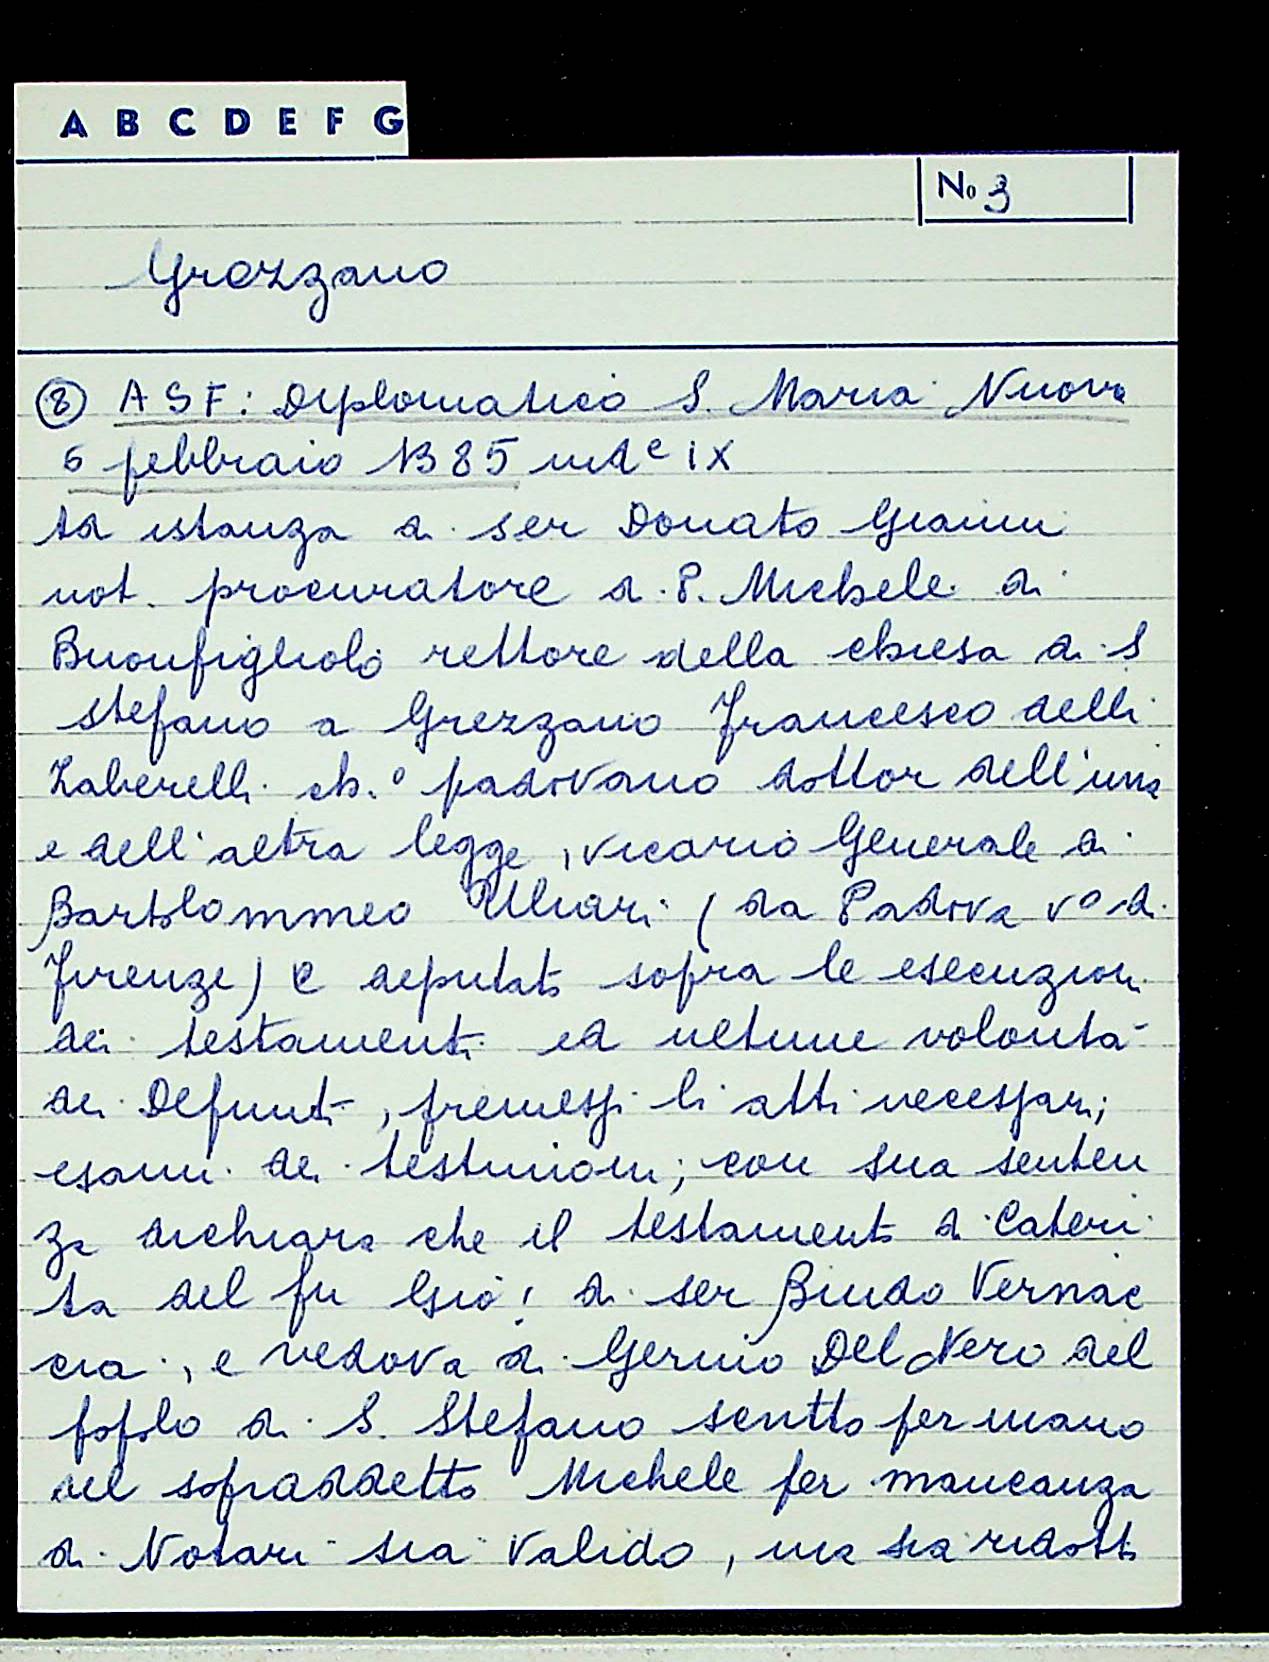 A B C D E F G
No 3
Grezzano
⑧ ASF: Diplomatico S. Maria Nuova
6 febbraio 1385 indᵉ IX
ad istanza di ser Donato Giannini
not. procuratore di P. Michele di
Buonfigliolo rettore della chiesa di S
Stefano a Grezzano Francesco delli
Zaberelli ch.º padovano dottor dell'una
e dell'altra legge, vicario Generale di
Bartolommeo Uliari (da Padova vº di
Firenze) e deputato sopra le esecuzioni
dei testamenti ed ultime volontà
dei Defunti, premessi li atti necessari;
esami dei testimoni; con sua senten
za dichiara che il testamento di Cateri
na del fu Gio: di ser Bindo Vernac
cia, e vedova di Gerino Del Nero del
popolo di S. Stefano scritto per mano
del sopraddetto Michele per mancanza
di Notari sia valido, ma sia ridotto